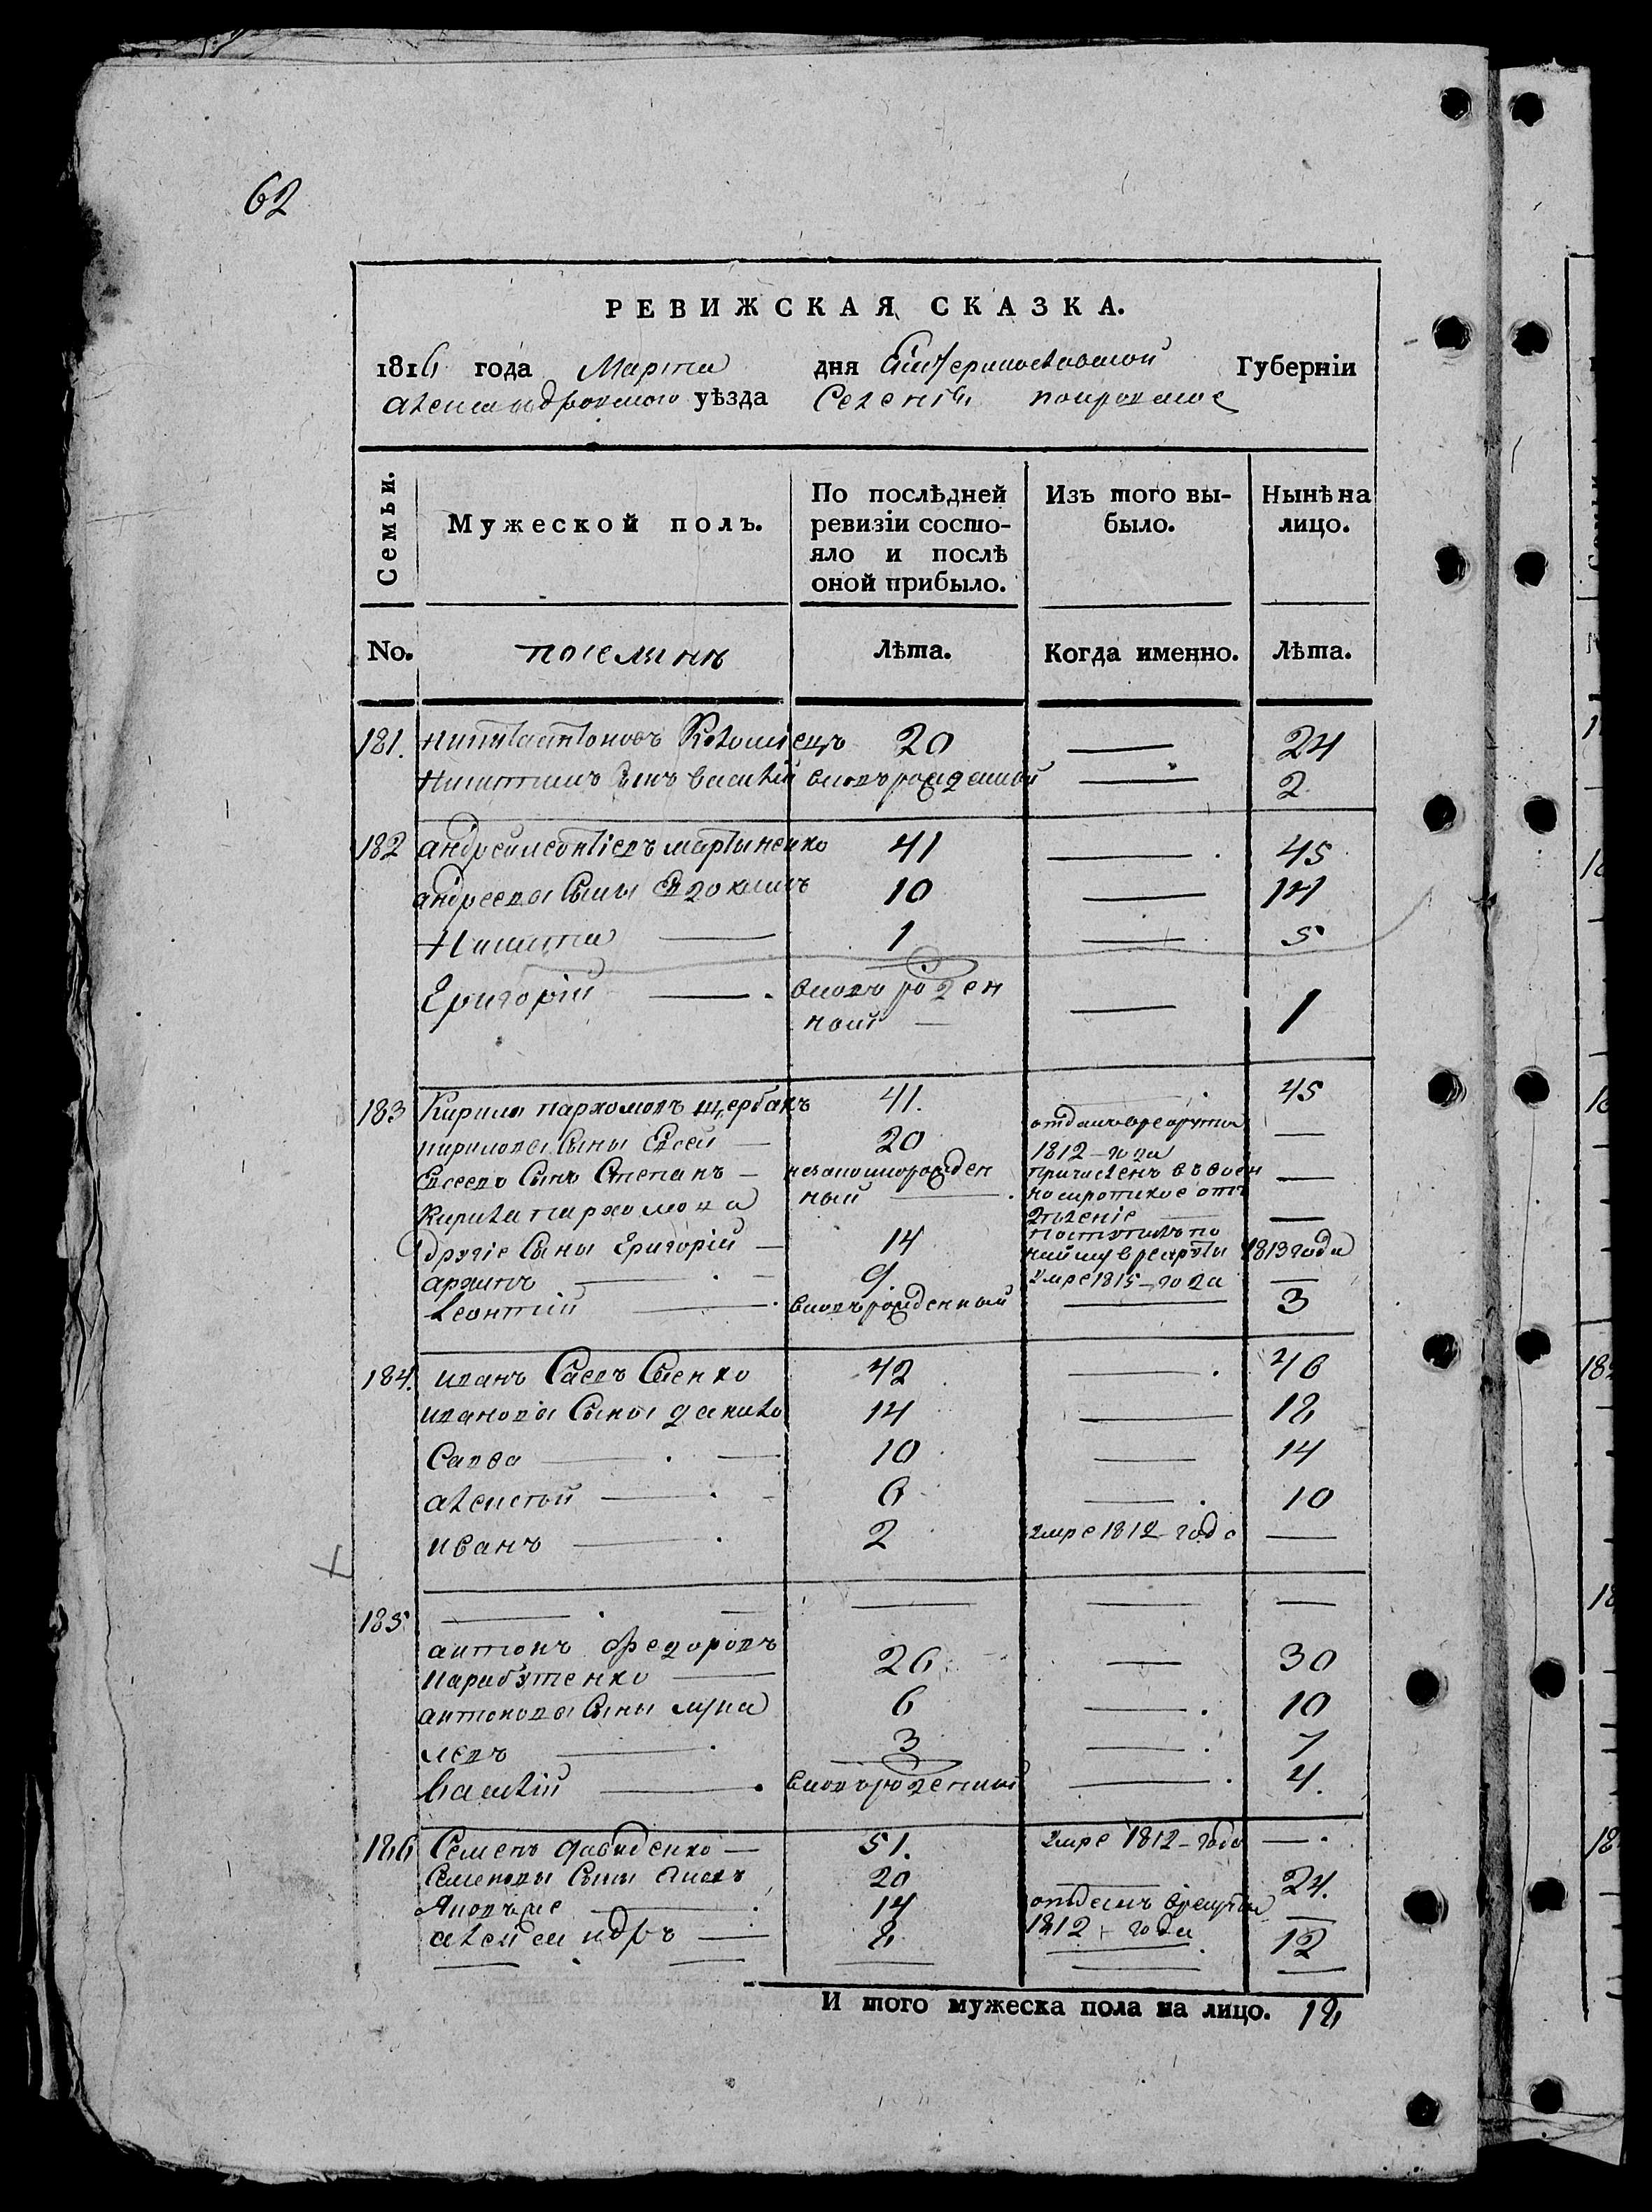 62
РЕВИЖСКАЯ СКАЗКА.
1816 года Марта дня Екатеринославской Губерніи
александровского уѣзда Селенія покровское
Семьи.
Мужеской полъ.
По послѣдней ревизіи состояло и послѣ оной прибыло.
Изъ того выбыло.
Нынѣ на лицо.
No. поселянъ Лѣта. Когда именно. Лѣта.
181. Никита антоновъ Коломіецъ 20 — 24
Никитинъ Сынъ василій вновърожденной — 2
182 андрей леонтіевъ мартыненко 41 — 45
андреевы Сыны Евдокимъ 10 — 14
Никита — 1 — 5
Григорій — вновърожден
ный — 1
183 Кирило пархомовъ щербакъ 41. — 45
кириловы Сыны Евсей — 20 отданъ врекруты 1812 года —
Евсеевъ Сынъ Степанъ — незаконнорожден
ный — причисленъ в военносиротское отделеніе —
Кирила пархомова —
другіе Сыны Григорій — 14 поступилъ по найму врекруты 1813 года
архипъ — 9. умре 1815 года —
леонтій — вновърожденный — 3
184. иванъ Саевъ Саенко 42 — 46
ивановы Сыны данило 14 — 18
Савва — 10 — 14
алексей — 6 — 10
иванъ — 2 умре 1812 года —
185 — — — —
антонъ федоровъ
карибутенко — 26 — 30
антоновы Сыны лука 6 — 10
левъ — 3 — 7
василій — вновърожденный — 4.
186 Семенъ давиденко — 51. умре 1812 года —
Семеновы Сыны 20 — 24.
Яковъ — 14 отданъ врекруты 1812 года —
александръ — 8 — 12
И того мужеска пола на лицо. 18